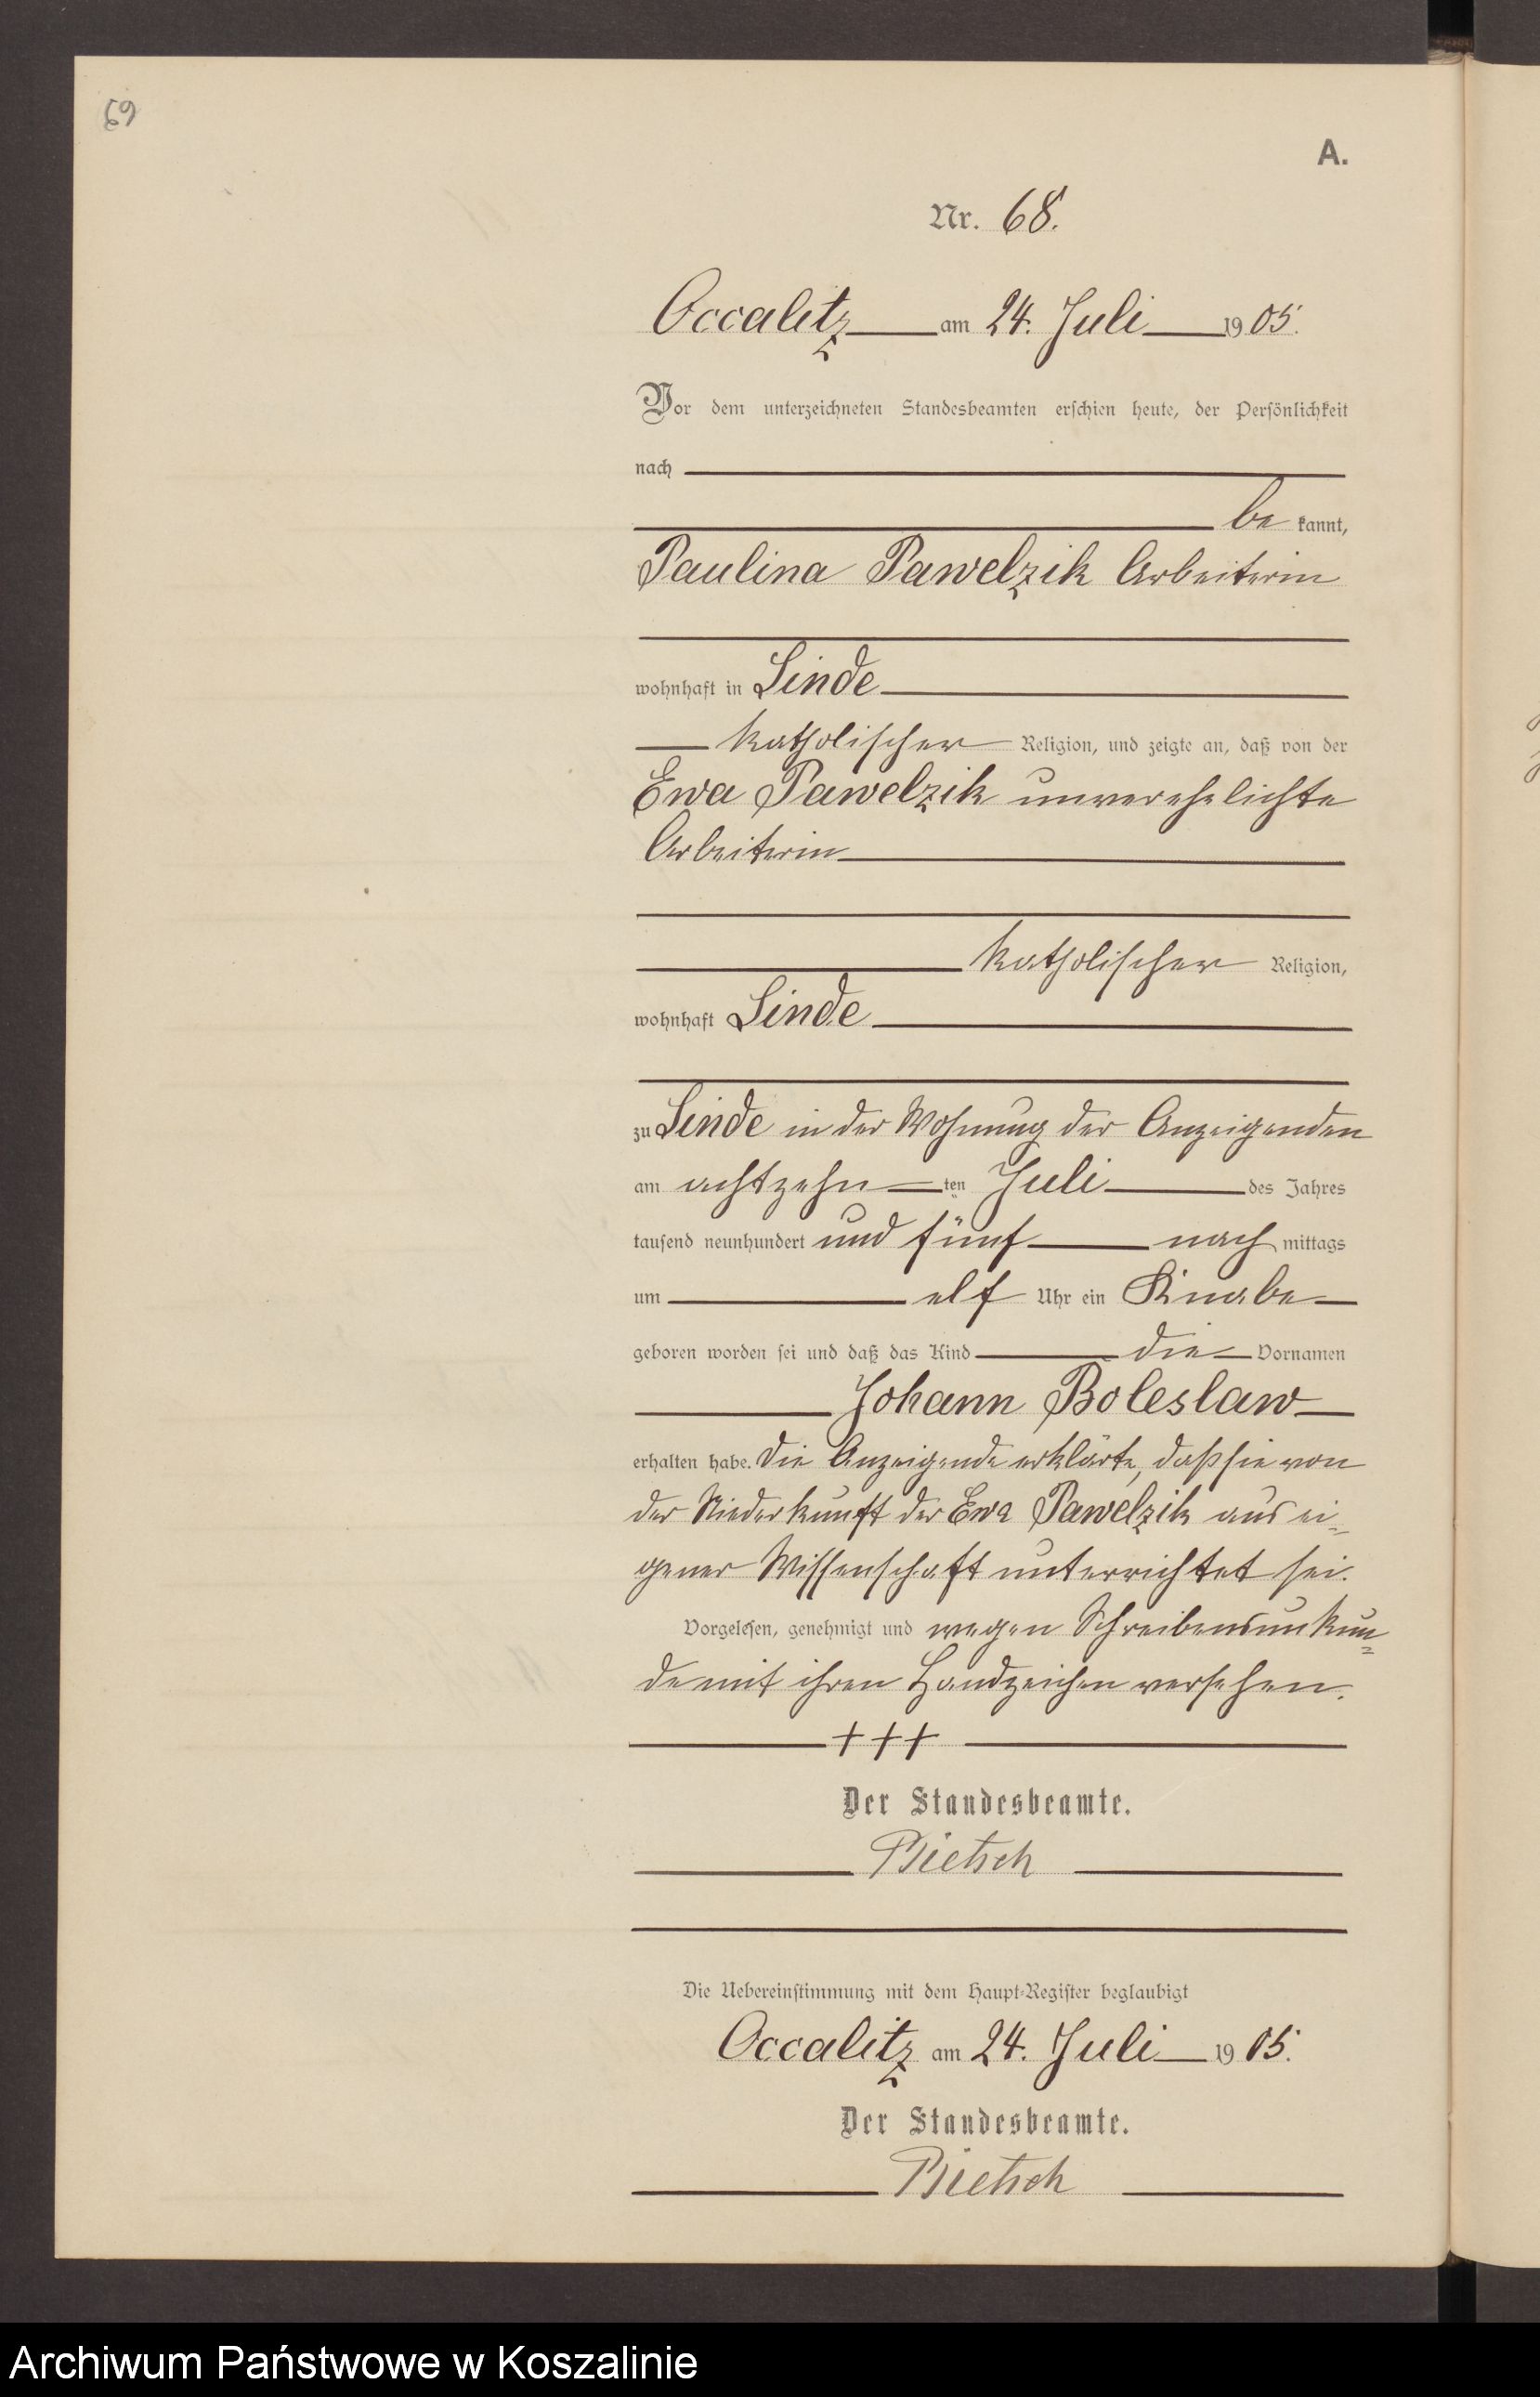 69
A.
Nr. 68.
Occalitz am 24. Juli 1905.
Vor dem unterzeichneten Standesbeamten erschien heute, der Persönlichkeit
nach
be kannt,
Paulina Pawelzik Arbeiterin
wohnhaft in Linde
katholischer Religion, und zeigte an, daß von der
Ewa Pawelzik unverehelichte
Arbeiterin
katholischer Religion,
wohnhaft Linde
zu Linde in der Wohnung der Anzeigenden
am achtzehn ten Juli des Jahres
tausend neunhundert und fünf nach mittags
um elf Uhr ein Knabe
geboren worden sei und daß das Kind die Vornamen
Johann Boleslaw
erhalten habe. Die Anzeigende erklärte, daß sie von
der Niederkunft der Ewa Pawelzik aus ei-
gener Wissenschaft unterrichtet sei.
Vorgelesen, genehmigt und wegen Schreibensunkun-
de mit ihren Handzeichen versehen.
+++
Der Standesbeamte.
Bietsch
Die Uebereinstimmung mit dem Haupt-Register beglaubigt
Occalitz am 24. Juli 1905.
Der Standesbeamte.
Bietsch
Archiwum Państwowe w Koszalinie